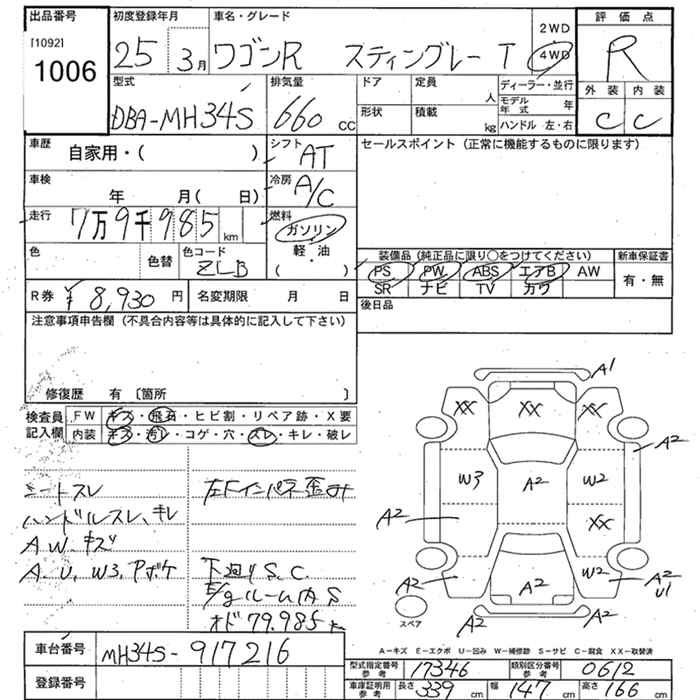 出品番号 初度登録年月 車名・グレード 2WD 評価点
[1092] 1006 25 3月 ワゴンR スティングレー T 4WD R
型式 排気量 ドア 定員 人 ディーラー・並行 外装 内装
DBA-MH34S 660 cc 形状 積載 kg モデル年式 年 C C
ハンドル 左・右
車歴 自家用・( ) シフト AT セールスポイント (正常に機能するものに限ります)
車検 年 月( 日) 冷房 A/C
走行 7万9千985 km 燃料 ガソリン
色 色替 色コード ZLB 軽・油 ( ) 装備品 (純正品に限り○をつけてください) 新車保証書
PS PW ABS エアB AW 有・無
R券 ¥8,930円 名変期限 月 日 SR ナビ TV カワ
注意事項申告欄 (不具合内容等は具体的に記入して下さい) 後日品
修復歴 有 〔箇所 〕
検査員記入欄 FW キズ・飛石・ヒビ割・リペア跡・X要
内装 キズ・汚レ・コゲ・穴・スレ・キレ・破レ
シートスレ 左Fインパネ歪み
ハンドルスレ、キレ
AW、キズ
A、U、W3、Pボケ 下廻りS、C
E/gルーム内S
オド79,985k
A1
XX XX XX
A2
W3 A2 W2
A2 XX
W2
A2 A2 A2 U1
A2 A2
スペア
A－キズ E－エクボ U－凹み W－補修跡 S－サビ C－腐食 XX－取替済
車台番号 MH34S-917216
型式指定番号 参考 17346 類別区分番号 参考 0612
登録番号 車庫証明用 参考 長さ 339 cm 幅 147 cm 高さ 166 cm